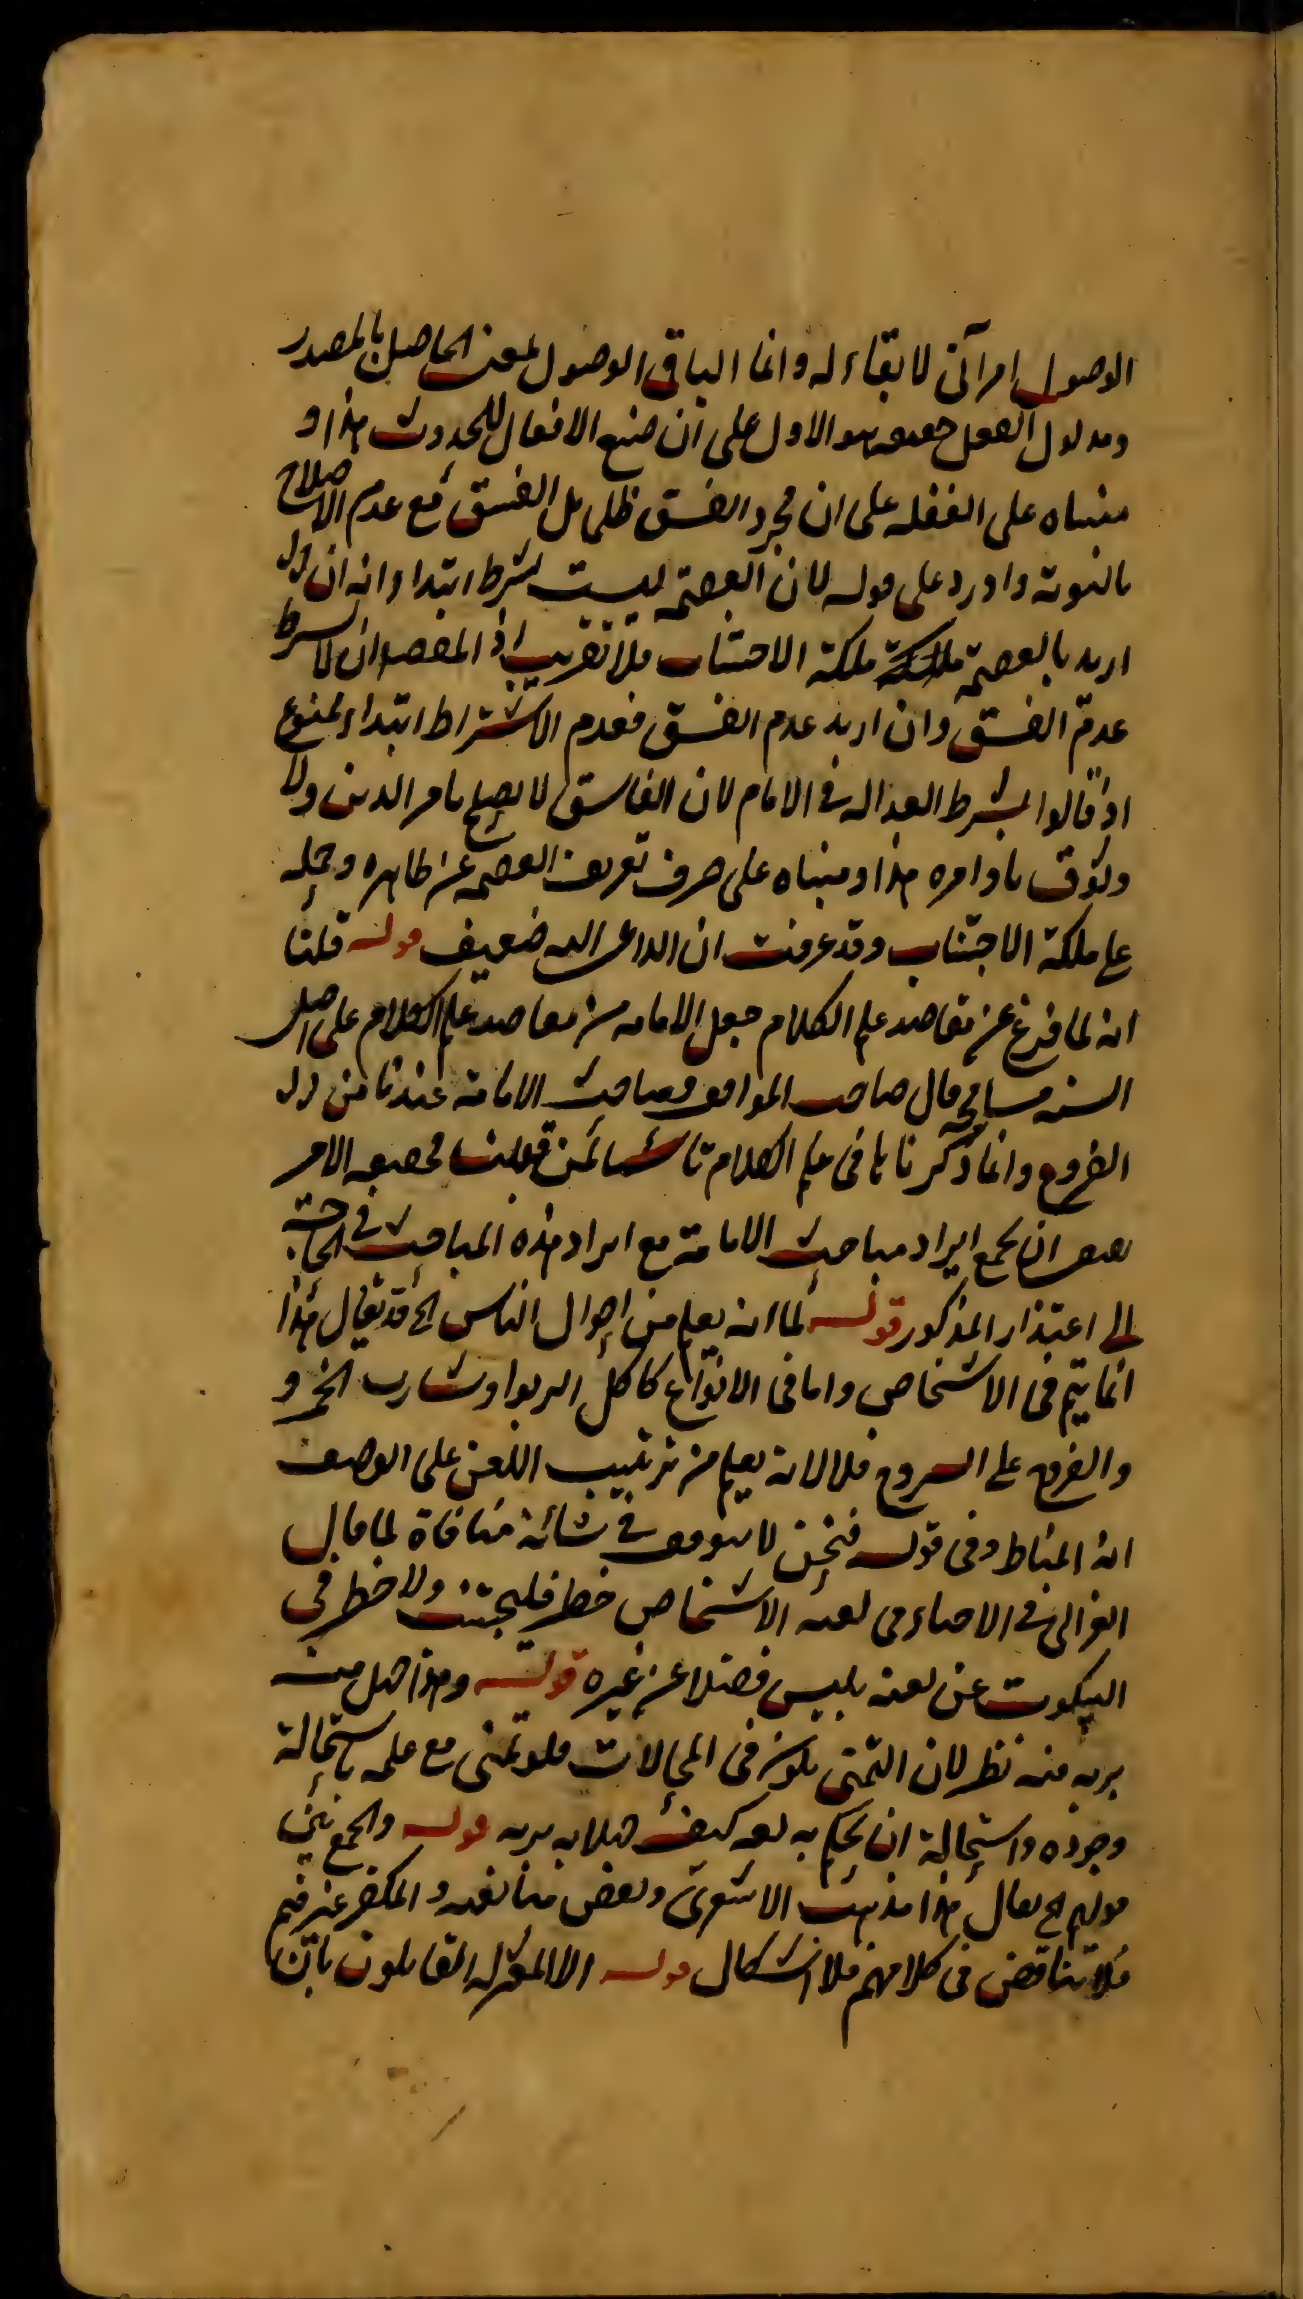 الوصول امر آنى لا بقاء له وانما الباقى الوصول بمعنى الحاصل بالمصدر
ومدلول الفعل حقيقة هو الاول على ان صيغ الافعال للحدوث هذا و
مبناه على الغفلة على ان مجرد الفسق ظلم بل الفسق مع عدم الاصلاح
بالتوبة واورد على قوله لان العصمة ليست بشرط ابتداء انه ان
اريد بالعصمة ملكة الاجتناب فلا تقريب اذ المقصود ان لا يشترط
عدم الفسق وان اريد عدم الفسق فعدم الاشتراط ابتداء ممنوع
اذ قالوا يشترط العدالة فى الامام لان الفاسق لا يصلح بامر الدين ولا
وثوق باوامره هذا ومبناه على صرف تعريف العصمة عن ظاهره وحمله
على ملكة الاجتناب وقد عرفت ان الداعى اليه ضعيف قوله قلنا
انه لما فرغ عن مقاصد علم الكلام جعل الامامة من مقاصد علم الكلام على اصل
السنة مسامحة قال صاحب المواقف ومباحث الامامة عندنا من
الفروع وانما ذكرناها فى علم الكلام تأسيا بمن قبلنا تحصيعه الامر
يعنى ان يجمع ايراد مباحث الامامة مع ايراد هذه المباحث فى الحاجة
الى اعتذار المذكور قوله لما انه يعلم من احوال الناس الخ قد يقال هذا
انما يتم فى الاشخاص واما فى الانواع كآكل الربوا وشارب الخمر و
والفروج على السروج فلا لانه يعلم من ترتيب اللعن على الوصف
انه المناط وفى قوله فنحن لا نتوقف فى شأنه منافاة لما قال
الغزالى فى الاحياء فى لعنة الاشخاص خطر فليجتنب ولا خطر فى
السكوت عن لعنة بليس فضلا عن غيره قوله وهذا هل من
مزية فيه نظر لان التمنى يكون فى المحالات فلو تمنى مع علمه باستحالة
وجوده واستحالة ان يحكم به لعد كيف قوله والجمع بين
قولهم الخ يقال هذا مذهب الاشعرى وبعض متابعيه والمكفر غيرهم
فلا تناقض فى كلامهم فلا اشكال قوله الا المعتزلة القائلون بان